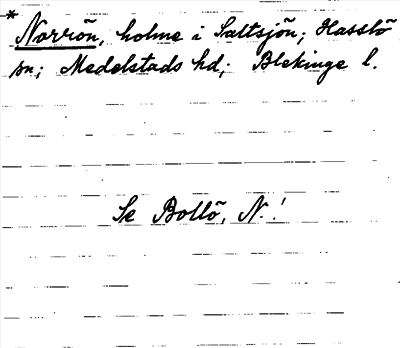 * Norrön, holme i Saltsjön; Hasslö
sn; Medelstads hd; Blekinge l.
Se Bollö, N.!